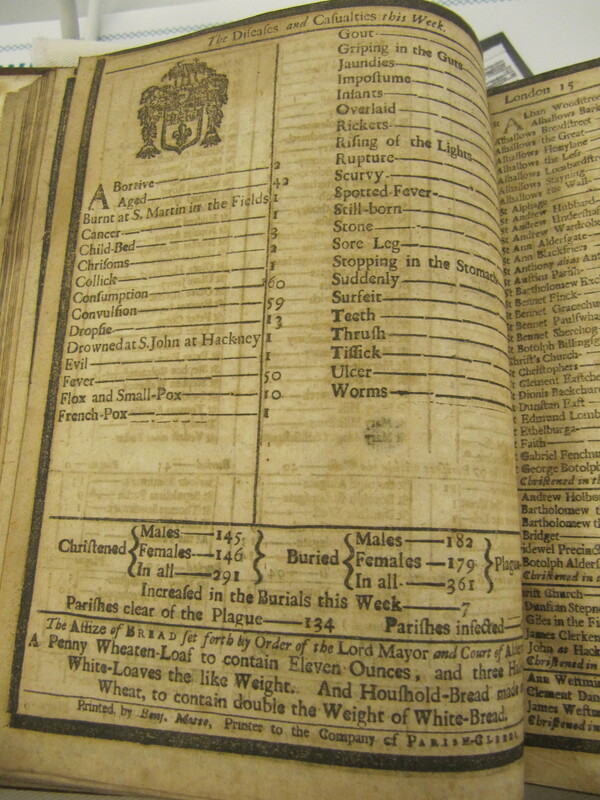 The Diſeaſes and Caſualties this Week.
ABortive 2
Aged 42
Burnt at S. Martin in the Fields 1
Cancer 3
Child-Bed 2
Chriſoms 1
Collick 1
Conſumption 60
Convulſion 59
Dropſie 13
Drowned at S. John at Hackney 1
Evil 1
Fever 50
Flox and Small-Pox 10
French-Pox 1
Gout
Griping in the Guts
Jaundies
Impoſtume
Infants
Overlaid
Rickets
Riſing of the Lights
Rupture
Scurvy
Spotted Fever
Still-born
Stone
Sore Leg
Stopping in the Stomach
Suddenly
Surfeit
Teeth
Thruſh
Tiſſick
Ulcer
Worms
Chriſtened { Males 145 Females 146 In all 291 }
Buried { Males 182 Females 179 In all 361 } Plag
Increaſed in the Burials this Week 7
Pariſhes clear of the Plague 134 Pariſhes infected
The Aſſize of BREAD ſet forth by Order of the Lord Mayor and Court of
A Penny Wheaten-Loaf to contain Eleven Ounces, and three
White-Loaves the like Weight. And Houſhold-Bread made
Wheat, to contain double the Weight of White-Bread.
Printed, by Benj. Printer to the Company of PARISH-CLERKS.
London 15
Alhallows Breadſtreet
Alhallows the Great
Alhallows Honylane
Alhallows the Leſs
Alhallows Lombardſt
Alhallows Stayning
Alhallows the Wall
St Alphage
St Andrew Hubbard
St Andrew Underſhaf
St Andrew Wardrobe
St Ann Alderſgate
St Ann Blackfriers
St Anthony alias
St Auſtins Pariſh
St Bartholomew Exc
St Bennet Finck
St Bennet Gracechur
St Bennet Paulſwha
St Bennet Sherehog
St Botolph Billingſg
Chriſt's Church
St Chriſtophers
St Clement Eaſtche
St Dionis Backchur
St Dunſtan Eaſt
St Edmund Lomb
Ethelburga
Faith
Gabriel Fenchu
George Botolp
Chriſtened in th
Andrew Holbo
Bartholomew
Bartholomew
Bridget
Bridewel Precinc
Botolph Alderſ
Chriſtened in
Chriſt Church
Dunſtan Stepn
Giles in the Fi
James Clerken
John at Hack
Chriſtened in
Ann Weſtmin
Clement Dan
James Weſtm
Chriſtened in